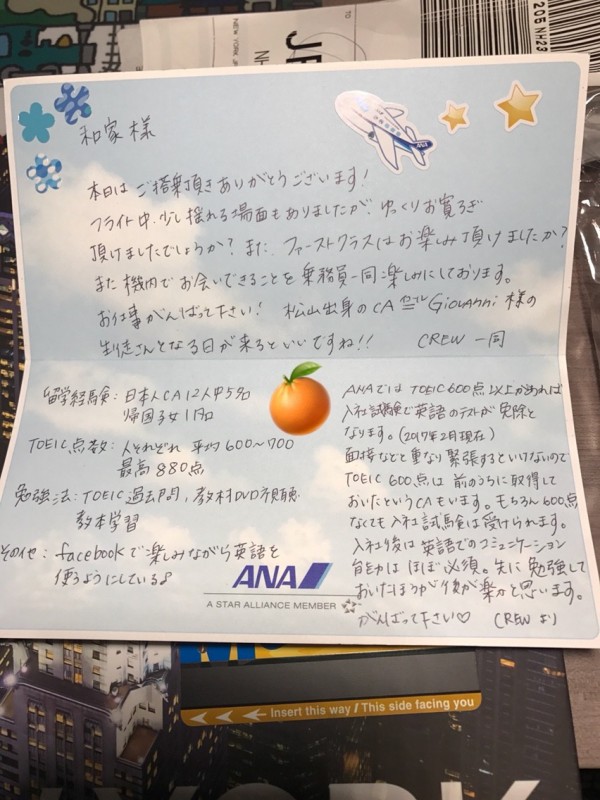 TO
NEW YORK, JFK
JF
NH
205 NH23
和家 様
本日は ご搭乗頂き ありがとうございます!
フライト中、少し揺れる場面もありましたが、ゆっくりお寛ぎ
頂けましたでしょうか? また、ファーストクラスはお楽しみ頂けましたか?
また機内でお会いできることを 乗務員一同 楽しみにしております。
お仕事がんばって下さい! 松山出身のCA が Giovanni 様の
生徒さんとなる日が来るといいですね!! CREW 一同
留学経験:日本人CA 12人中5名
帰国子女 1名
TOEIC 点数:人それぞれ 平均600〜700
最高 880点
勉強法:TOEIC過去問、教材DVD視聴
教本学習
その他:facebookで楽しみながら英語を
使うようにしている
ANAでは TOEIC600点以上があれば
入社試験で英語のテストが免除と
なります。(2017年2月現在)
面接などと重なり緊張するといけないので
TOEIC 600点は 前のうちに取得して
おいたというCAもいます。もちろん600点
なくても入社試験は受けられます。
入社後は英語でのコミュニケーション
能力は ほぼ必須。先に勉強して
おいたほうが後が楽かと思います。
がんばって下さい♡ CREW より
ANA
A STAR ALLIANCE MEMBER
Insert this way / This side facing you
YORK